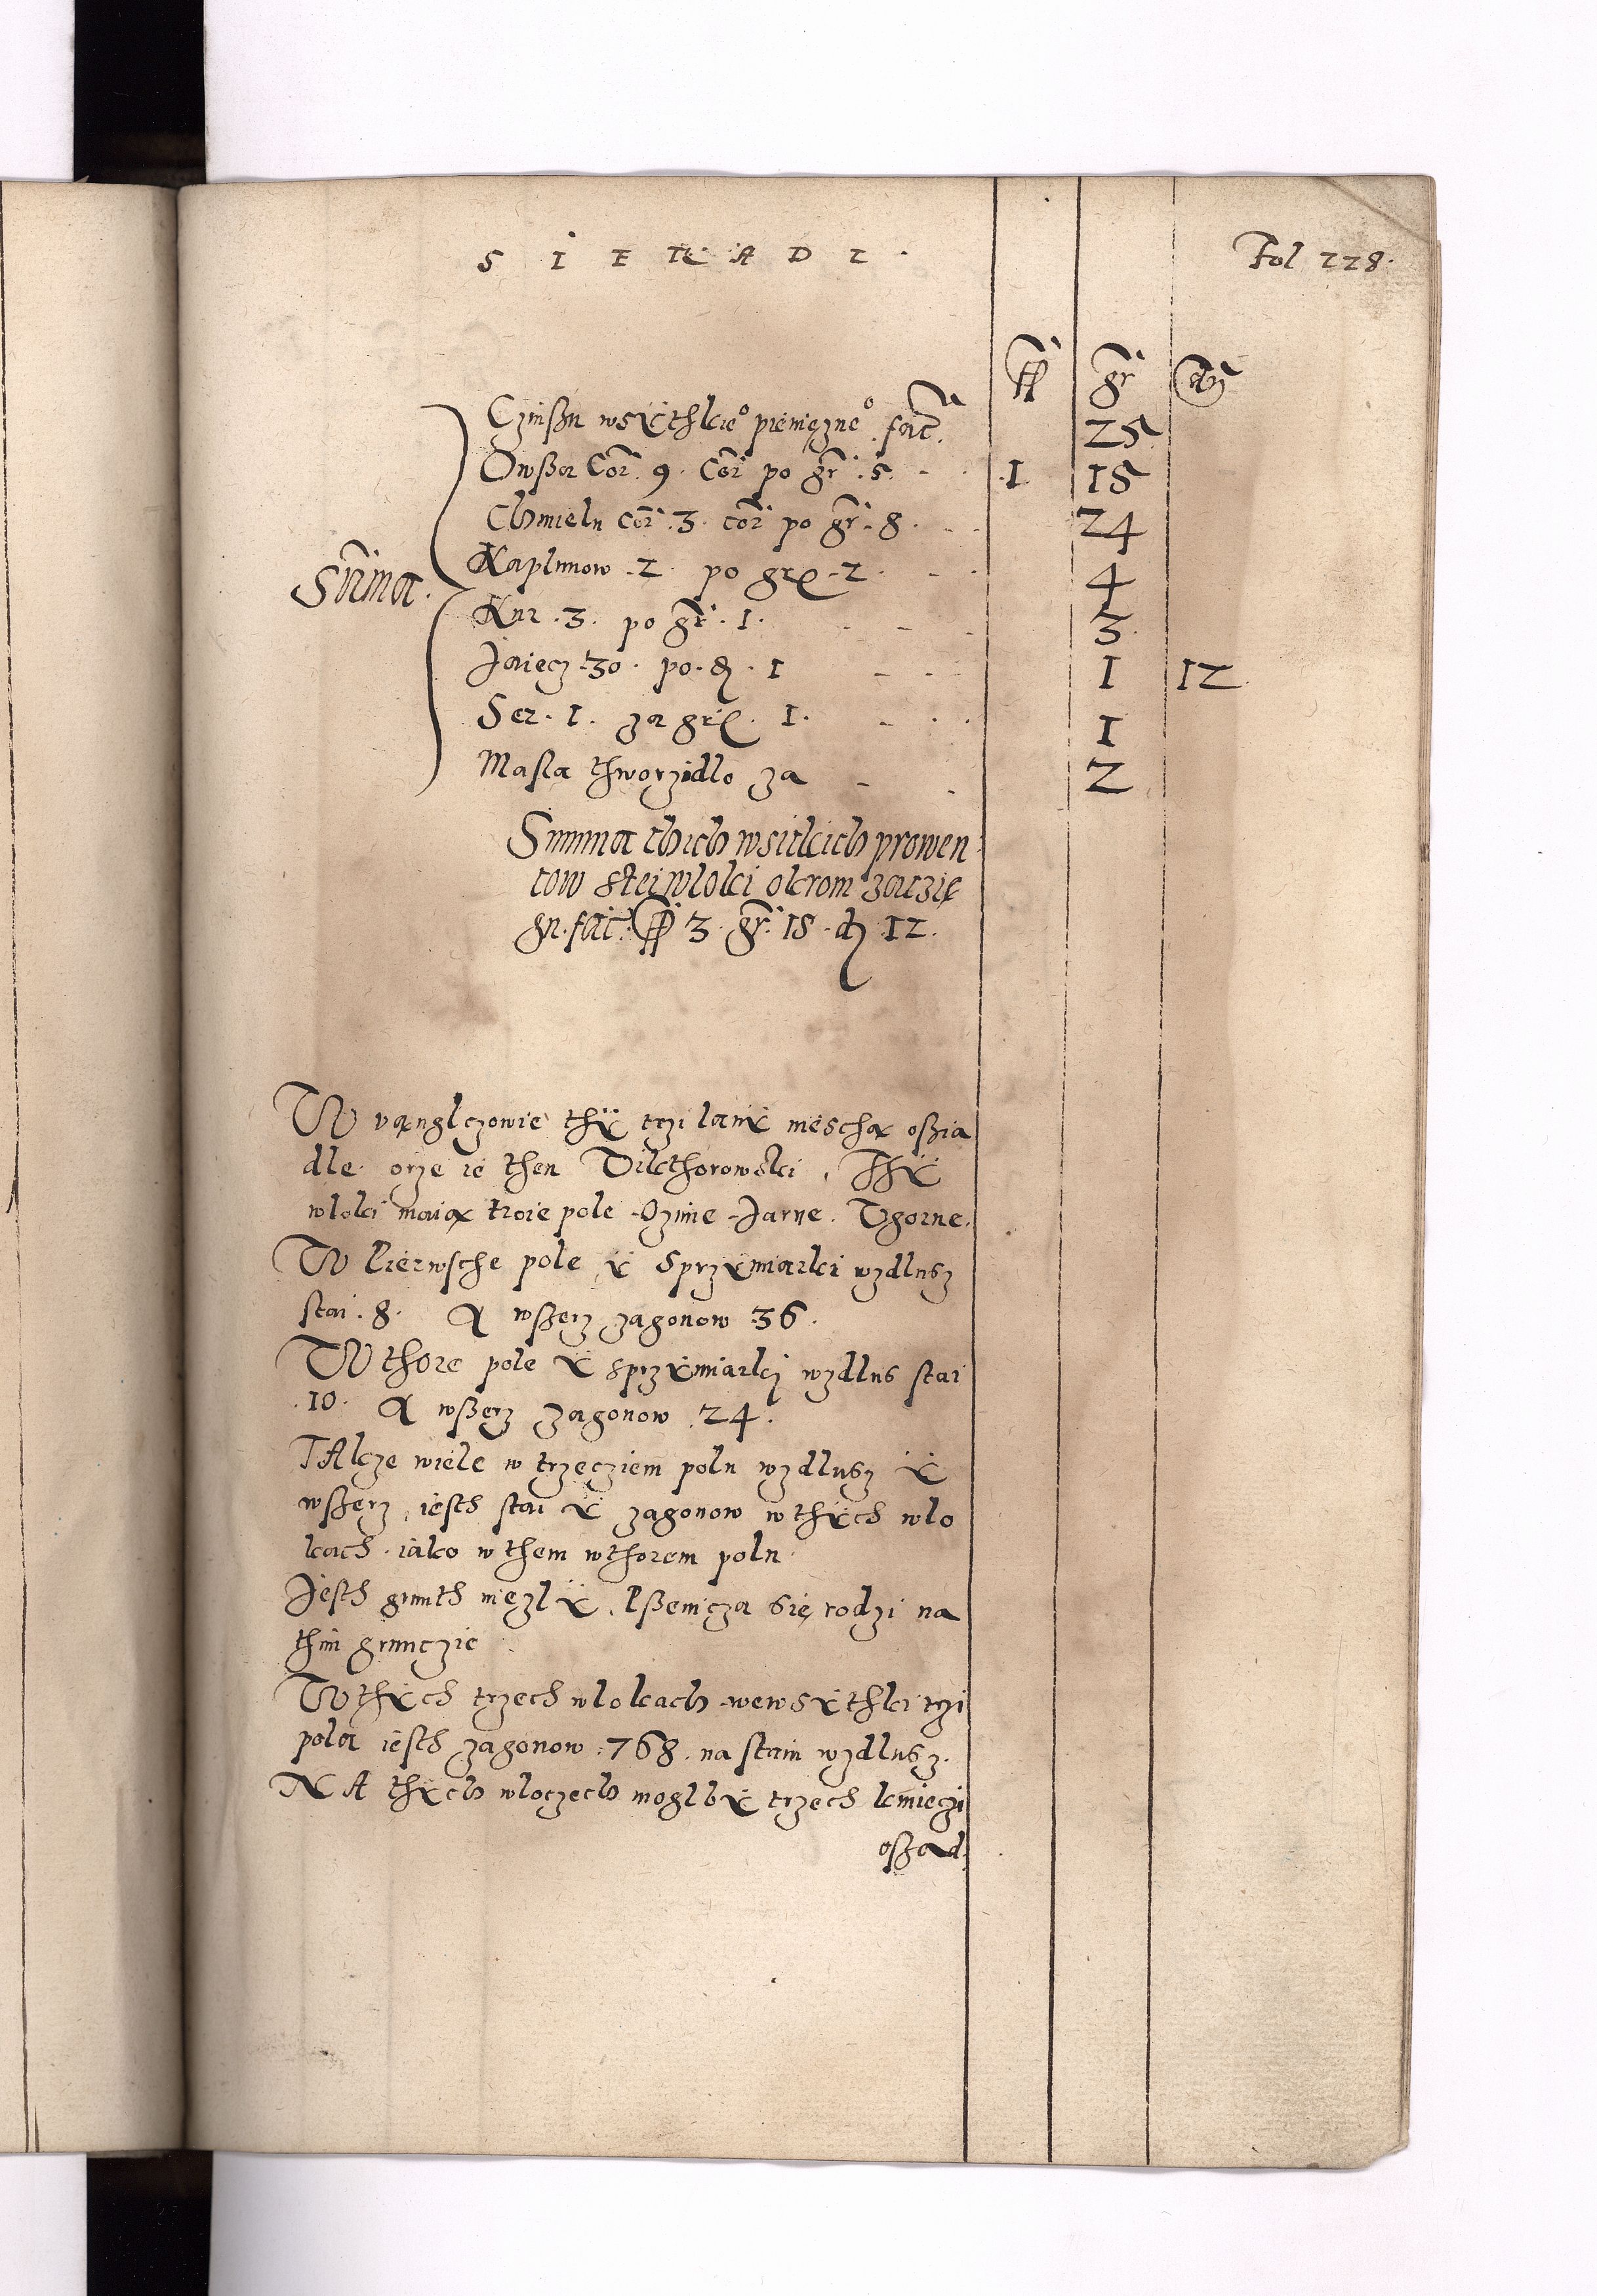 S I E R A D Z .
Fol 228.
ff gr d
Czinßu wsÿthkie° pieniezne° . fac̃. 25
Owßa Cor̃. 9. Cor̃ po gr̃ .5. 1 15
Chmielu cor̃ .3. cor̃ po gr̃ .8. 24
Kaplunow .2. po gr .2. 4
Sum̃ma.
Kur .3. po gr̃ .1. 3
Jaiecz .30. po . d . 1 1 12
Ser . 1. za gr . 1. 1
Masla thworzidlo za 2
Summa thich wsitkich prowen
tow stei wloki okrom zaczię
gu . fac̃ . ff 3 . gr̃ 15 . d . 12 .
W vąnglczowie thÿ trzi lanÿ mieschą oßia
dle . orze ie then Dikthorowski . Thÿ
wloki maią troie pole . Ozime . Jarne . Vgorne .
W Pierwsche pole ÿ Sprzÿmiarki wzdlusz
stai . 8. A wßerz zagonow .36.
W thore pole ÿ sprzÿmiarki wzdlus stai
.10. A wßerz zagonow .24.
TAkze wiele w trzecziem polu wzdlusz ÿ
wßerz , iesth stai ÿ zagonow w thÿch wlo
kach . iako w them wthorem polu .
Jesth grunth niezlÿ . Pßenicza się rodzi na
thim grunczie .
W thÿch trzech wlokach . wewsÿthki trzi
pola iesth zagonow . 768 . na staiu wzdlusz .
NA thÿch wloczech moglbÿ trzech kmieczi
oßad.